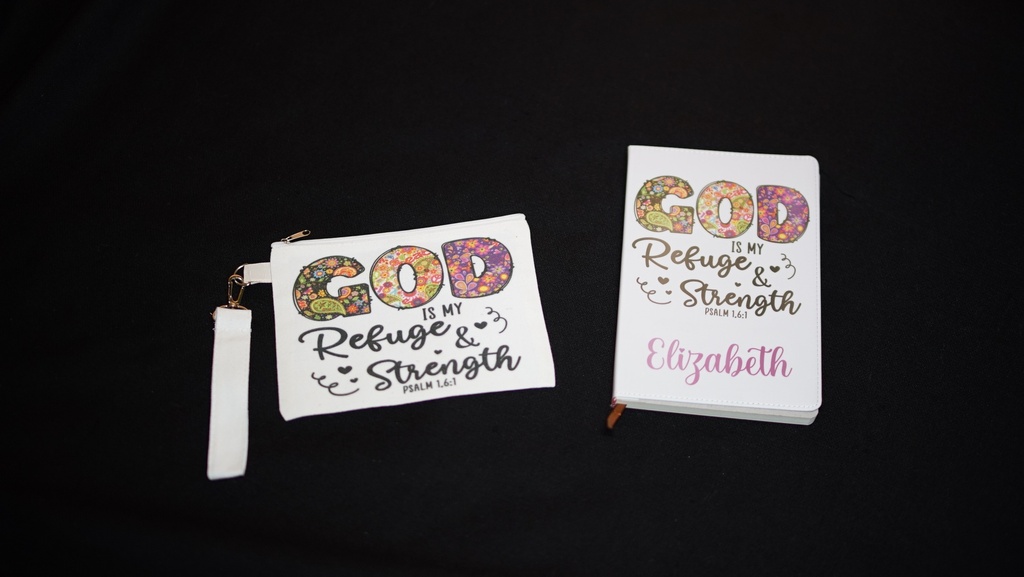 GOD
IS MY
Refuge
&
Strength
PSALM 1,6:1
GOD
IS MY
Refuge
&
Strength
PSALM 1,6:1
Elizabeth